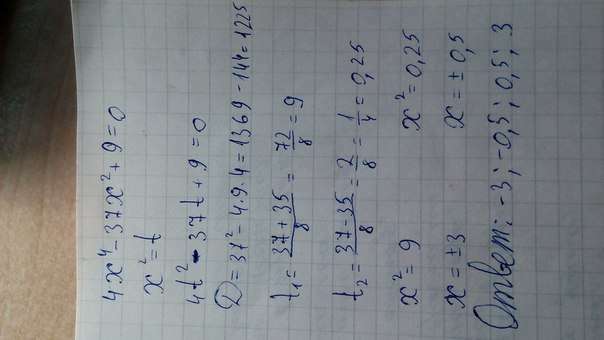 4x⁴-37x²+9=0
x²=t
4t²-37t+9=0
D=37²-4·9·4=1369-144=1225
t₁=(37+35)/8=72/8=9
t₂=(37-35)/8=2/8=1/4=0,25
x²=9 x²=0,25
x=±3 x=±0,5
Ответ: -3; -0,5; 0,5; 3